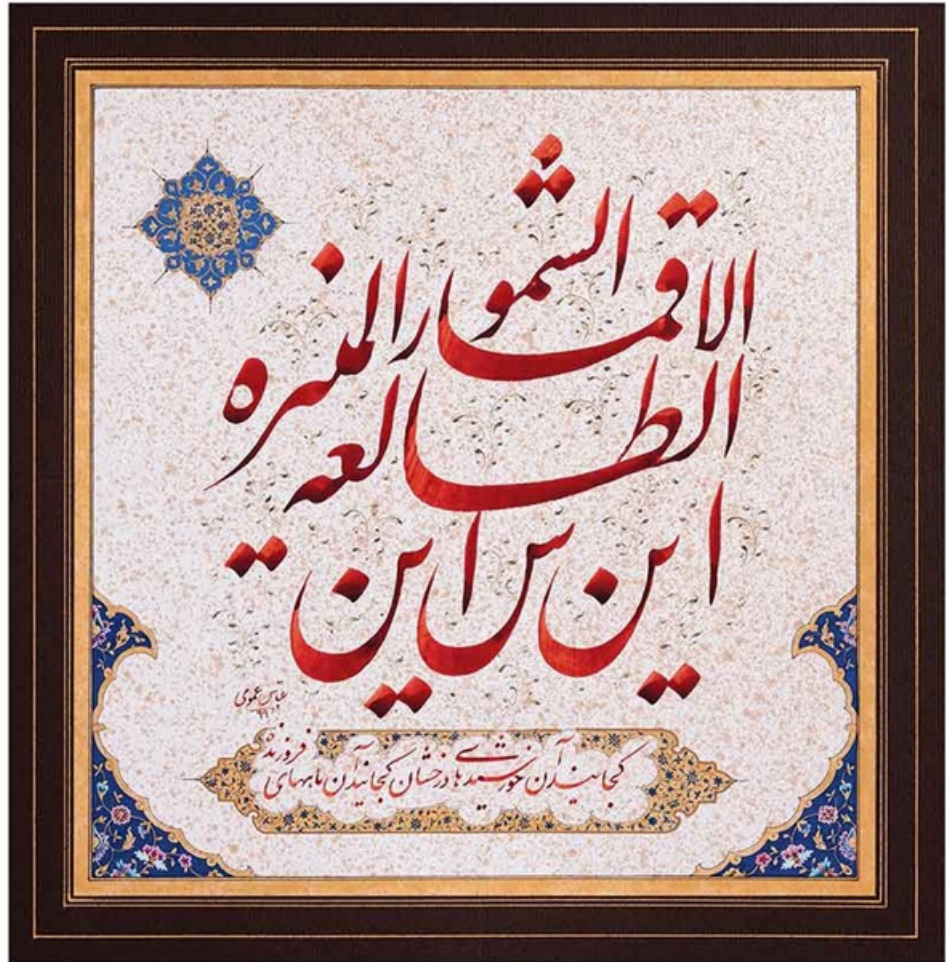 این الشموس الطالعه این الاقمار المنیره
عباس عمومی
۹۹
کجایند آن خورشیدهای درخشان کجایند آن ماههای فروزنده